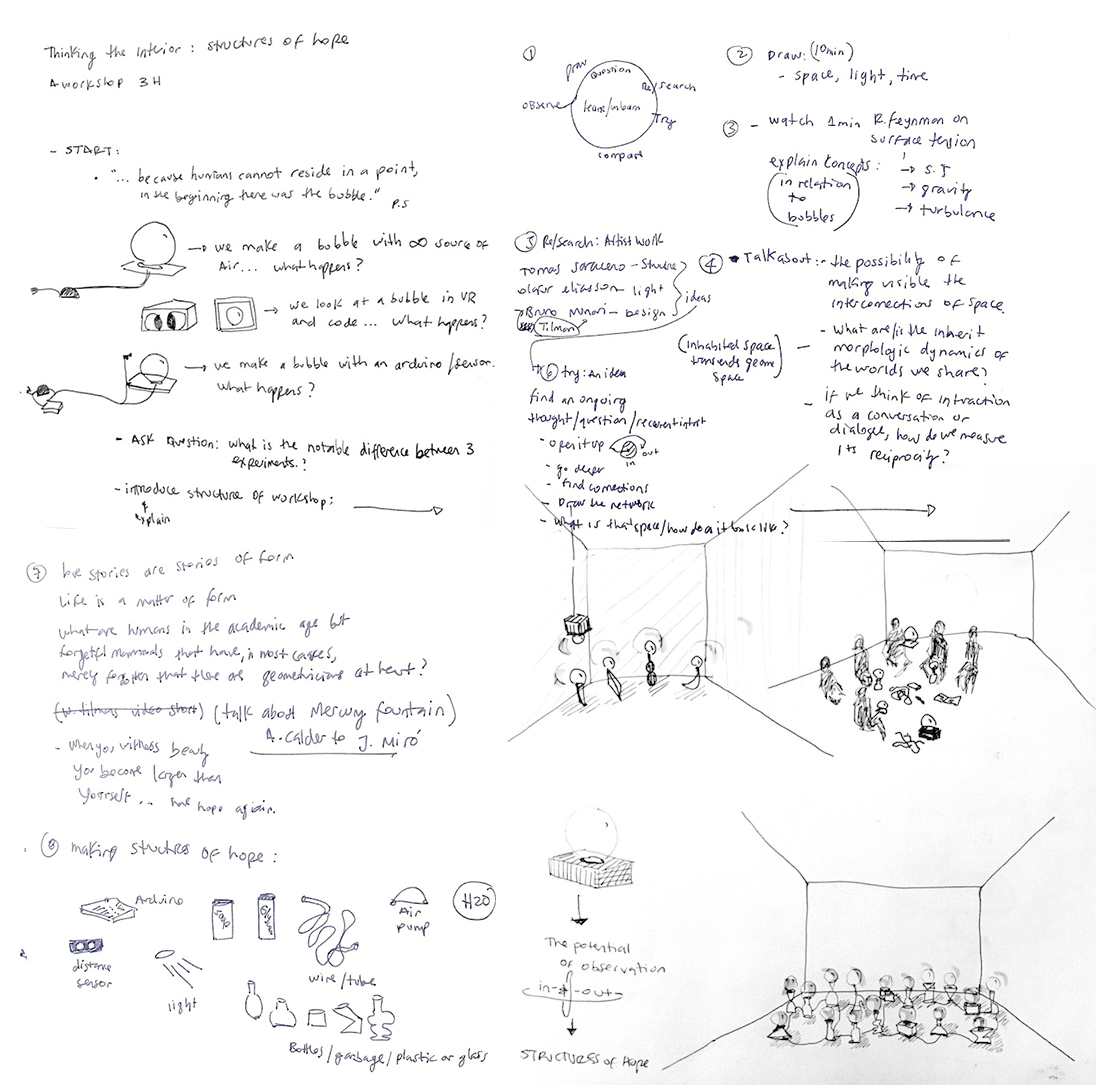 Thinking the Interior : structures of hope
A workshop 3H
- START:
• "... because humans cannot reside in a point,
in the beginning there was the bubble."
P.S
→ we make a bubble with ∞ source of
Air... what happens?
→ we look at a bubble in VR
and code... what happens?
→ we make a bubble with an arduino/sensor.
What happens?
- Ask Question: what is the notable difference between 3
experiments.?
- introduce structure of workshop:
& explain
①
draw
Question
Re/search
observe
learn/unlearn
Try
compart
② Draw: (10min)
- space, light, time
③ - watch 1min R.Feynman on
surface tension
explain concepts:
→ S.T
→ gravity
→ turbulance
in relation
to
bubbles
⑤ Re/search: Artist work
Tomas Saraceno -
olafur eliasson - light
Bruno Munari - design
ideas
Tilman
④ • Talk about: - the possibility of
making visible the
interconnections of space.
- What are/is the inherit
morphologic dynamics of
the worlds we share?
(inhabited space
transends geome
space)
- if we think of intraction
as a conversation or
dialogue, how do we measure
its reciprocity?
⑥ try: An idea
find an ongoing
thought/question/recurrent intrst
- open it up
in
out
- go deeper
- find connections
- Draw the network
- What is that space/how does it look like?
⑦ love stories are stories of form
Life is a matter of form
what are humans in the academic age but
forgetful mammals that have, in most cases,
merely forgotten that there are geometricians at heart?
(w. tilmans video short) (talk about Mercury fountain)
A. Calder to J. Miró
- When you witness beauty
you become larger than
yourself... have hope again.
⑧ making structres of hope :
Arduino
soap
Air
pump
H2O
distance
sensor
light
wire/tube
Bottles/garbage/plastic or glass
The potential
of observation
in - - out
STRUCTURES of Hope